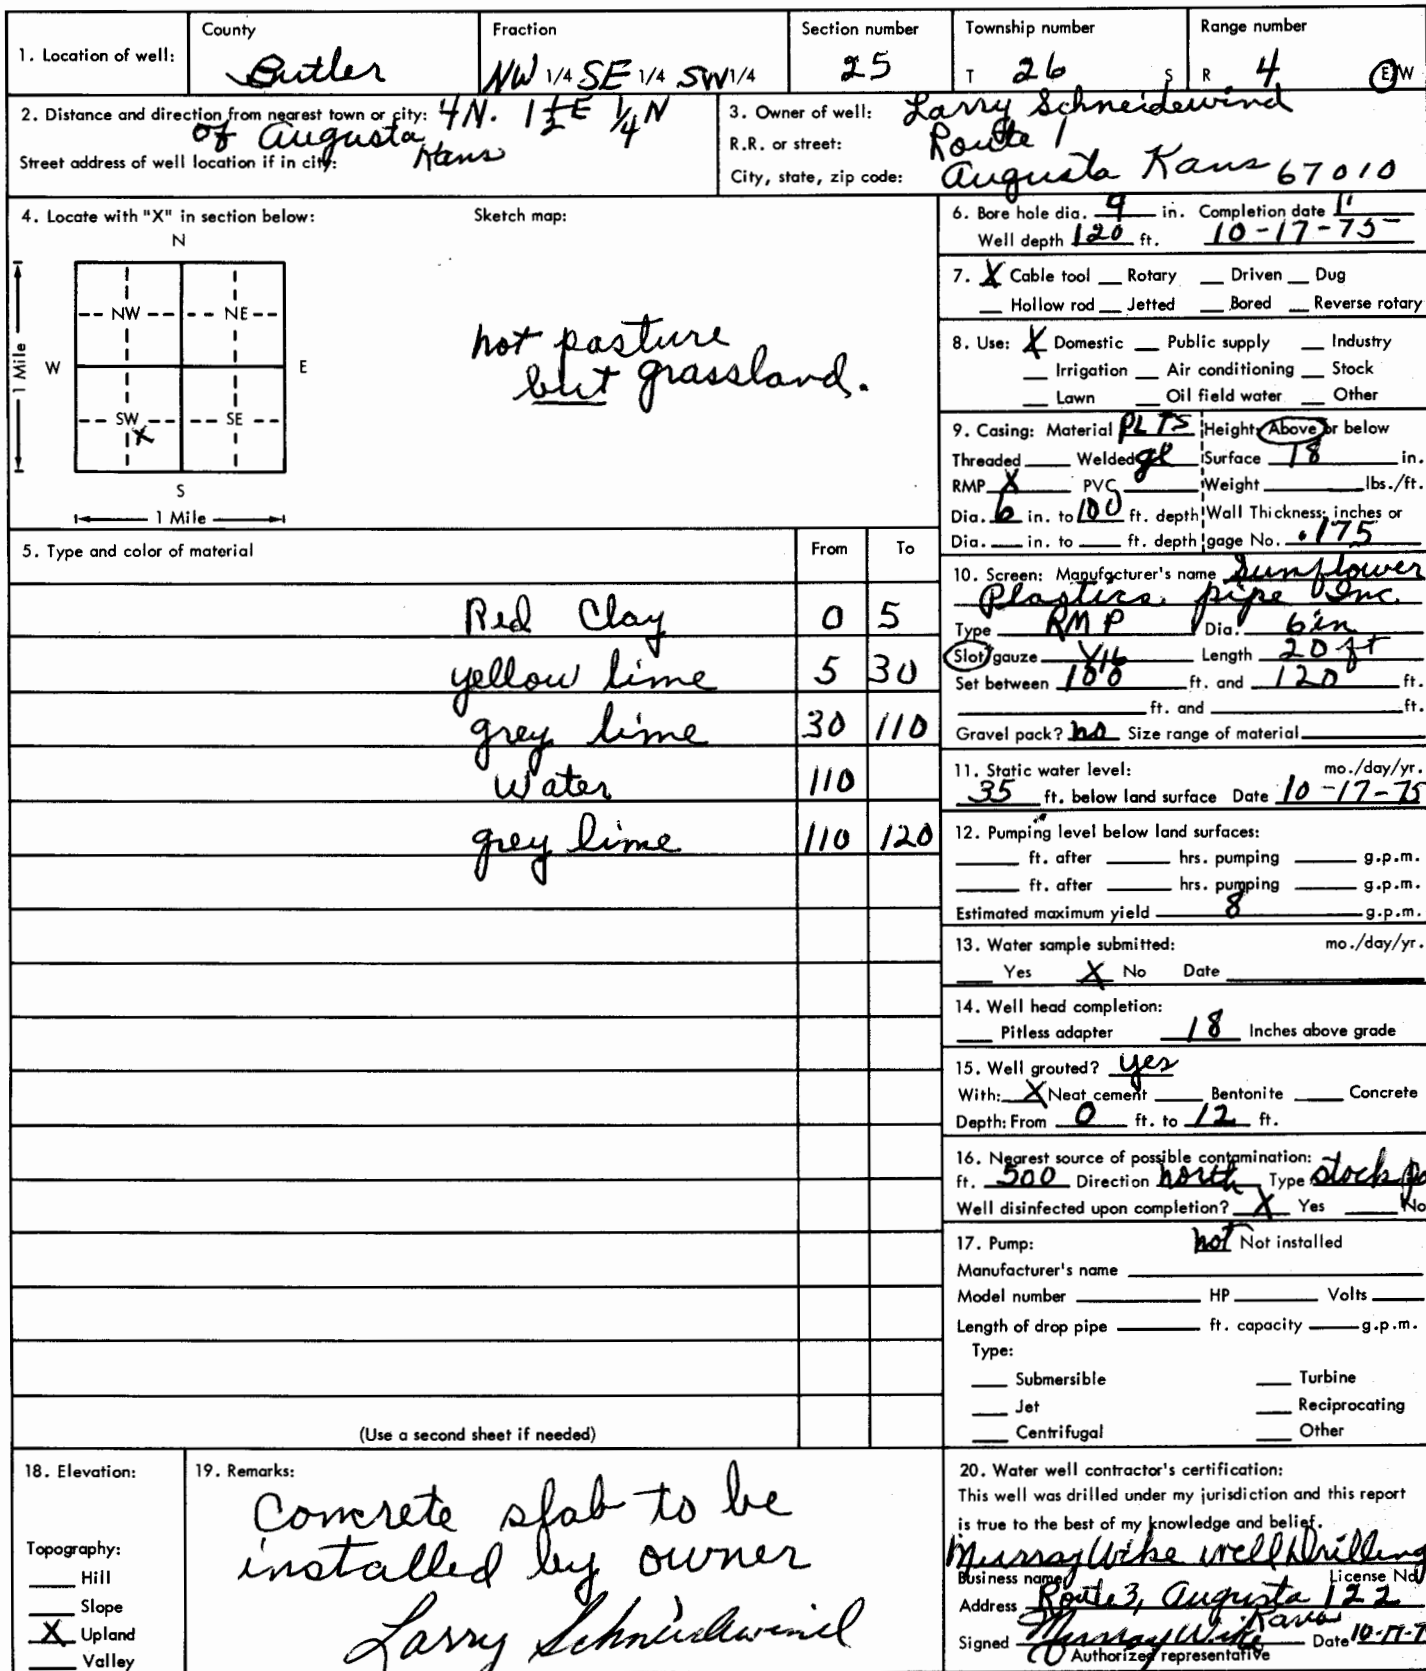 County Fraction Section number Township number Range number
1. Location of well: Butler NW 1/4 SE 1/4 SW 1/4 25 T 26 S R 4 E/W
2. Distance and direction from nearest town or city: 4N. 1 1/2 E 1/4 N
of Augusta
Kans
Street address of well location if in city:
3. Owner of well: Larry Schneidewind
R.R. or street: Route 1
City, state, zip code: Augusta Kans 67010
4. Locate with "X" in section below: Sketch map:
N
NW NE
W E
1 Mile
SW SE
X
S
1 Mile
not pasture
but grassland.
5. Type and color of material From To
Red Clay 0 5
yellow lime 5 30
grey lime 30 110
Water 110
grey lime 110 120
(Use a second sheet if needed)
6. Bore hole dia. 9 in. Completion date
Well depth 120 ft. 10-17-75
7. X Cable tool __ Rotary __ Driven __ Dug
__ Hollow rod __ Jetted __ Bored __ Reverse rotary
8. Use: X Domestic __ Public supply __ Industry
__ Irrigation __ Air conditioning __ Stock
__ Lawn __ Oil field water __ Other
9. Casing: Material PLTS Height: Above or below
Threaded __ Welded gl Surface 18 in.
RMP X PVC __ Weight __ lbs./ft.
Dia. 6 in. to 100 ft. depth Wall Thickness: inches or
Dia. __ in. to __ ft. depth gage No. .175
10. Screen: Manufacturer's name Sunflower
Plastics pipe Inc.
Type RMP Dia. 6in
Slot/gauze 1/16 Length 20 ft
Set between 100 ft. and 120 ft.
__ ft. and __ ft.
Gravel pack? no Size range of material __
11. Static water level: mo./day/yr.
35 ft. below land surface Date 10-17-75
12. Pumping level below land surfaces:
__ ft. after __ hrs. pumping __ g.p.m.
__ ft. after __ hrs. pumping __ g.p.m.
Estimated maximum yield 8 g.p.m.
13. Water sample submitted: mo./day/yr.
__ Yes X No Date __
14. Well head completion:
__ Pitless adapter 18 Inches above grade
15. Well grouted? yes
With: X Neat cement __ Bentonite __ Concrete
Depth: From 0 ft. to 12 ft.
16. Nearest source of possible contamination:
ft. 500 Direction north Type stock po
Well disinfected upon completion? X Yes __ No
17. Pump: not Not installed
Manufacturer's name __
Model number __ HP __ Volts __
Length of drop pipe __ ft. capacity __ g.p.m.
Type:
__ Submersible __ Turbine
__ Jet __ Reciprocating
__ Centrifugal __ Other
18. Elevation:
Topography:
__ Hill
__ Slope
X Upland
__ Valley
19. Remarks:
Concrete slab to be
installed by owner
Larry Schneidewind
20. Water well contractor's certification:
This well was drilled under my jurisdiction and this report
is true to the best of my knowledge and belief.
Murray Wike well Drilling
Business name License No.
Address Route 3, Augusta 122
Kans
Signed Murray Wike Date 10-17-7
Authorized representative